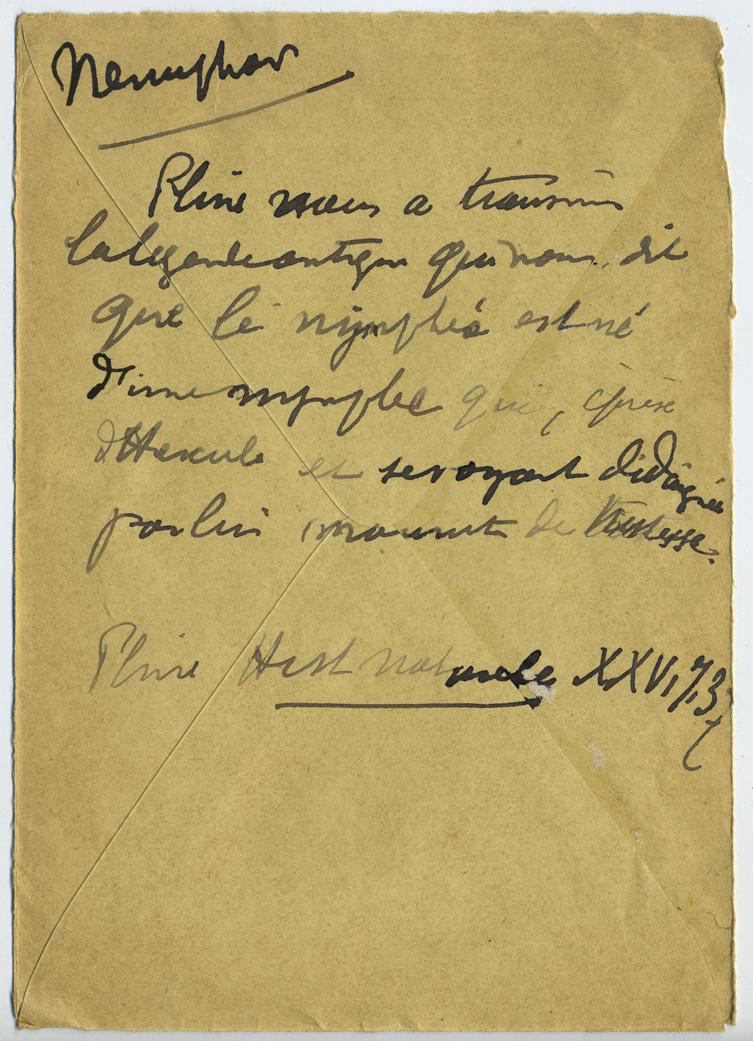 Nenuphar
Pline nous a transmis
la légende antique qui nous dit
que le nymphéa est né
d'une nymphe qui, éprise
d'Hercule et se voyant dédaignée
par lui mourut de tristesse.
Pline Hist naturelle XXV, 7, 37